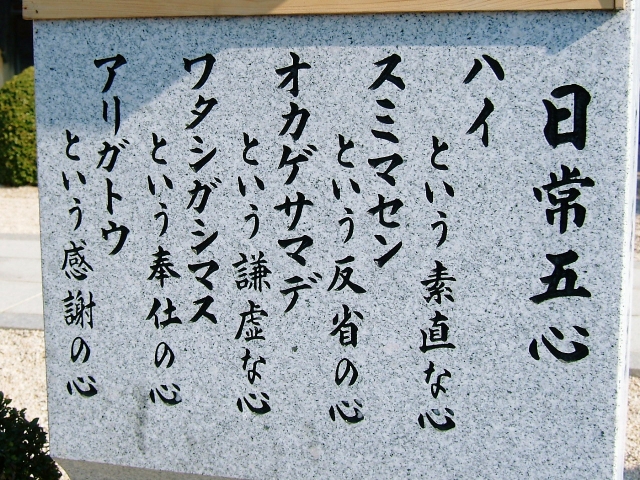 日常五心
ハイ
という素直な心
スミマセン
という反省の心
オカゲサマデ
という謙虚な心
ワタシガシマス
という奉仕の心
アリガトウ
という感謝の心